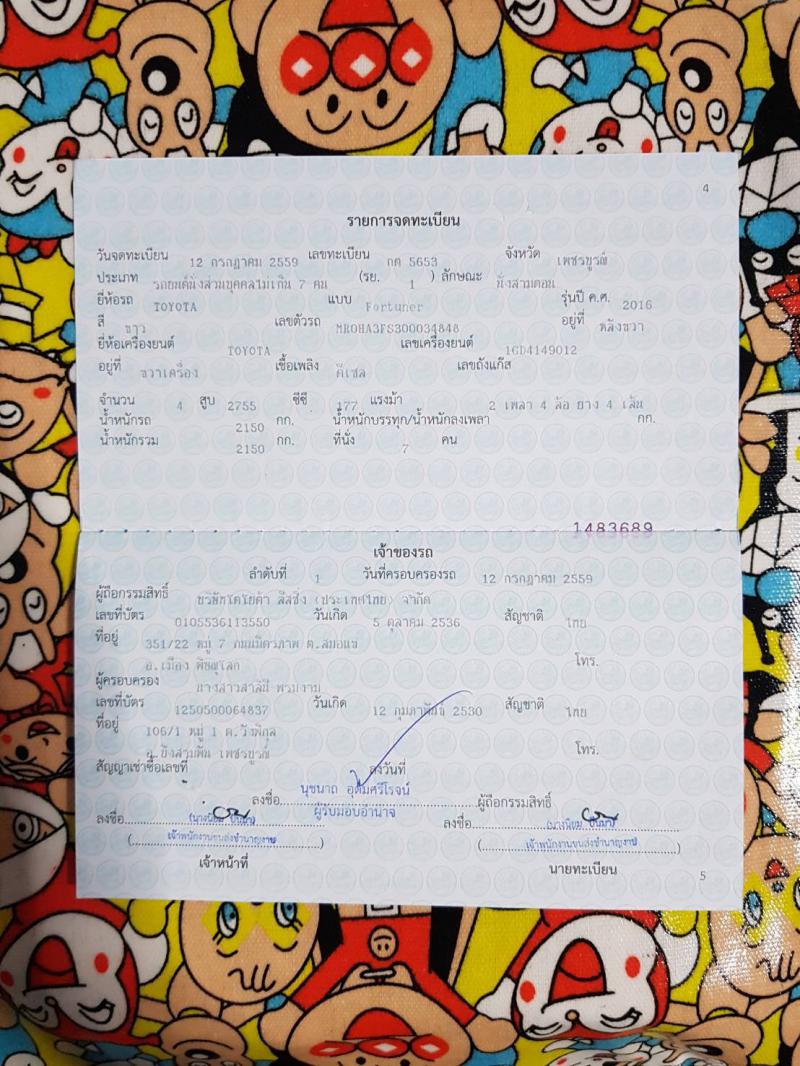 4
รายการจดทะเบียน
วันจดทะเบียน 12 กรกฎาคม 2559 เลขทะเบียน กต 5653 จังหวัด เพชรบูรณ์
ประเภท รถยนต์นั่งส่วนบุคคลไม่เกิน 7 คน (รย. 1 ) ลักษณะ นั่งสามตอน
ยี่ห้อรถ TOYOTA แบบ Fortuner รุ่นปี ค.ศ. 2016
สี ขาว เลขตัวรถ MR0HA3FS300034848 อยู่ที่ หลังขวา
ยี่ห้อเครื่องยนต์ TOYOTA เลขเครื่องยนต์ 1GD4149012
อยู่ที่ ขวาเครื่อง เชื้อเพลิง ดีเซล เลขถังแก๊ส
จำนวน 4 สูบ 2755 ซีซี 177 แรงม้า 2 เพลา 4 ล้อ ยาง 4 เส้น
น้ำหนักรถ 2150 กก. น้ำหนักบรรทุก/น้ำหนักลงเพลา กก.
น้ำหนักรวม 2150 กก. ที่นั่ง 7 คน
1483689
เจ้าของรถ
ลำดับที่ 1 วันที่ครอบครองรถ 12 กรกฎาคม 2559
ผู้ถือกรรมสิทธิ์ บริษัทโตโยต้า ลีสซิ่ง (ประเทศไทย) จำกัด
เลขที่บัตร 0105536113550 วันเกิด 5 ตุลาคม 2536 สัญชาติ ไทย
ที่อยู่ 351/22 หมู่ 7 ถนนมิตรภาพ ต.สมอแข
อ.เมือง พิษณุโลก โทร.
ผู้ครอบครอง นางสาวสาลินี พรมงาม
เลขที่บัตร 1250500064837 วันเกิด 12 กุมภาพันธ์ 2530 สัญชาติ ไทย
ที่อยู่ 106/1 หมู่ 1 ต.วังพิกุล
อ.บึงสามพัน เพชรบูรณ์ โทร.
สัญญาเช่าซื้อเลขที่ ลงวันที่
นุชนาถ อุดมศรีโรจน์
ลงชื่อ ผู้ถือกรรมสิทธิ์
ผู้รับมอบอำนาจ
ลงชื่อ ลงชื่อ
(เจ้าพนักงานขนส่งชำนาญงาน) (เจ้าพนักงานขนส่งชำนาญงาน)
เจ้าหน้าที่ นายทะเบียน
5